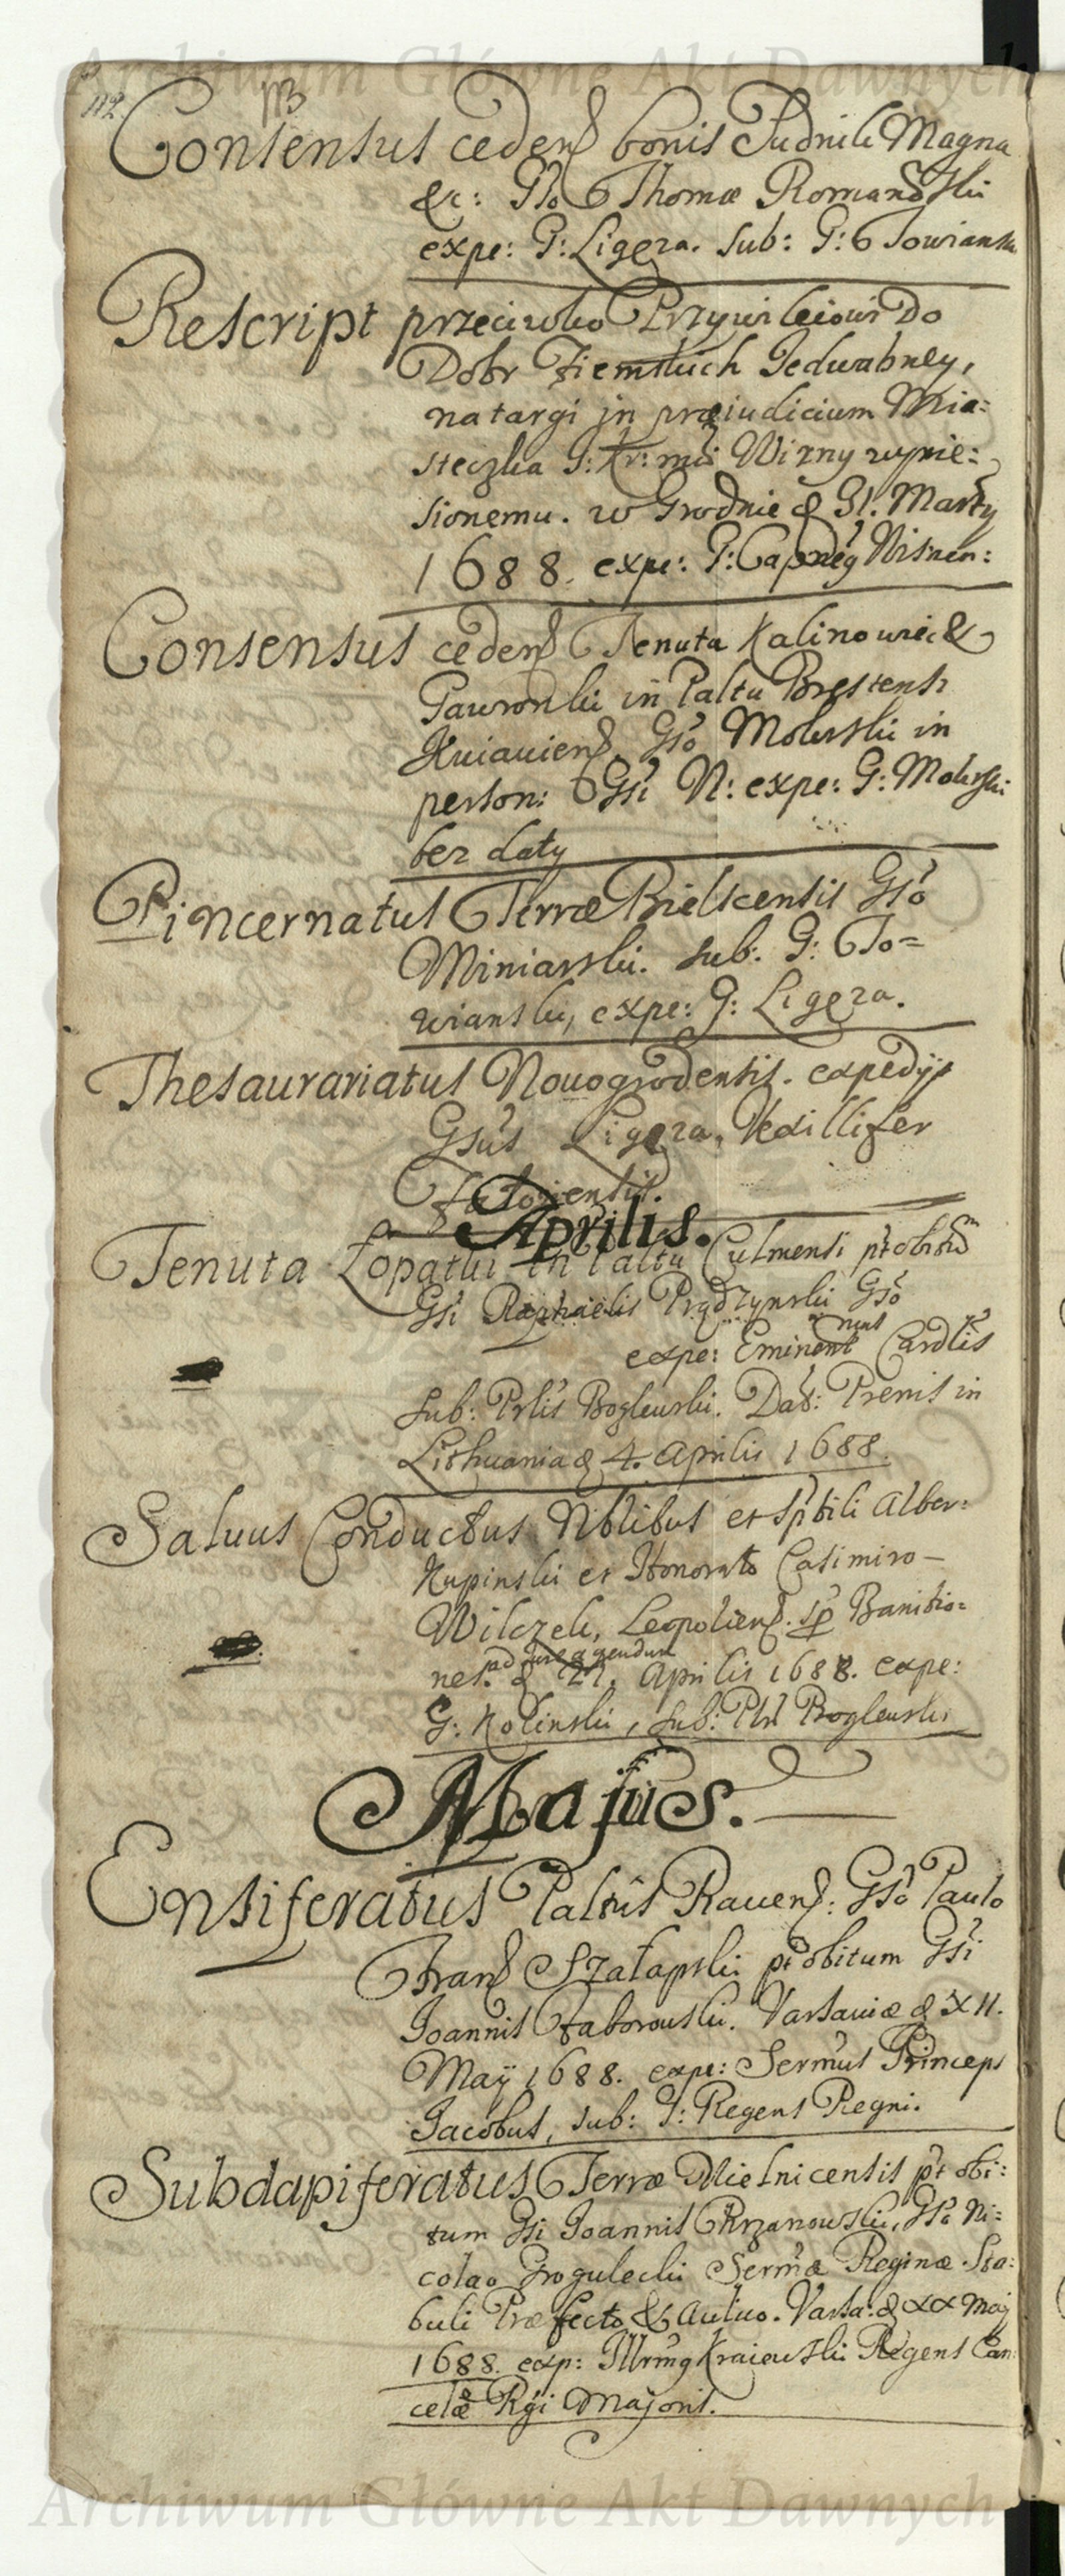 Archiwum Główne Akt Dawnych
112
Consensus cedend bonis Sudnik Magna
&c: Gso Thomæ Romanowski
expe: G: Ligeza. sub: G: Towianski
Rescript przeciwko Przywileiowi Do
Dobr Ziemskich Jedwabney,
na targi in præiudicium Mia:
steczka J: Kr: mci Wizny wynie:
sionemu. w Grodnie d 31. Marty
1688. expe: G: Capneg Wisnen:
Consensus cedend Tenuta Kalinowiec &
Gawronki in Paltu Brestensi
Kuiauiens. Gso Mokrski in
person: Gsi N: expe: G: Mokrski
bez daty
Pincernatus Terræ Bielscensis Gso
Miniarski. sub: G: To=
wianski, expe: G: Ligeza.
Thesaurariatus Nouogrodensis. expedijt
Gsus Ligeza, Vexillifer
Zatoriensis.
Aprilis.
Tenuta Łopatui in Paltu Culmensi pt obitum
Gsi Raphaelis Prądzynski Gso
expe: Eminent nmus Cardlis
sub: Prlis Bogleuski. Dat: Prenis in
Lithuania d 4. Aprilis 1688.
Saluus Conductus Nblibus et Spbili Alber:
Kupinski et Honorato Casimiro
Wilczek, Leopoliens. sp Banitio=
nes. ad jure agendum d 27. Aprilis 1688. expe:
G: Kolinski, sub: Plri Bogleuski
Majus.
Ensiferatus Paltûs Rauens: Gso Paulo
Frans Szałapski pt obitum Gsi
Joannis Zaborouski. Varsauiæ d XII.
Maÿ 1688. expe: Sermus Princeps
Jacobus, sub: G: Regens Regni.
Subdapiferatus Terræ Mielnicensis pt obi:
tum Gsi Joannis Chrzanowski, Gso Ni:
colao Grogulecki Sermæ Reginæ Sta:
buli Præfecto & Aulico. Varsa: d XX Maj
1688. exp: Illrmg Kraieuski Regens Can
celæ Rgi Majoris.
Archiwum Główne Akt Dawnych